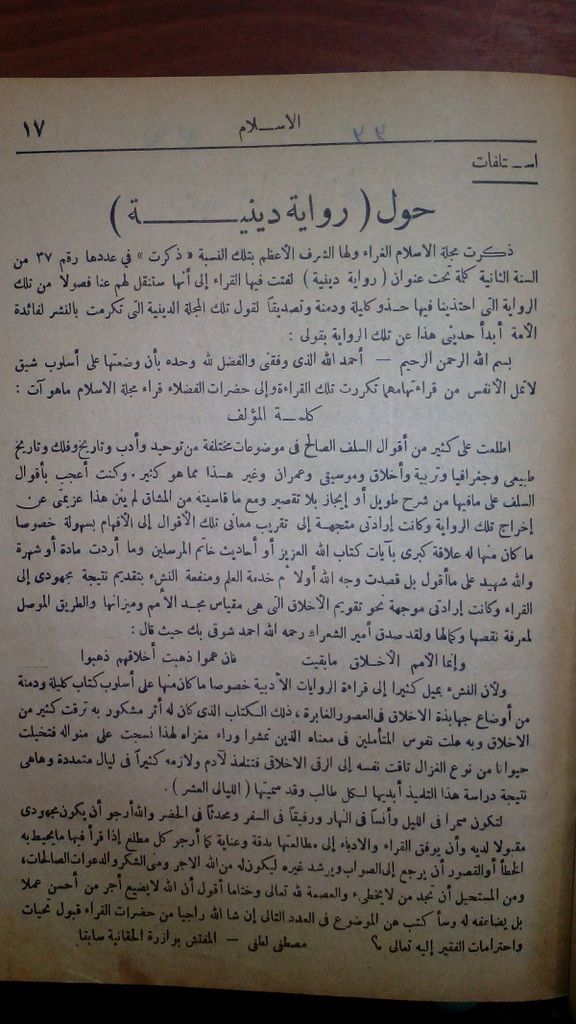 ١٧ الاسـلام ٣٣
اسـتلفات
حول ( رواية دينيـــــة )
ذكرت مجلة الاسلام الغراء ولها الشرف الأعظم بتلك النسبة « ذكرت » في عددها رقم ٣٧ من
السنة الثانية كلمة تحت عنوان ( رواية دينية ) لفتت فيها القراء إلى أنها ستنقل لهم عنا فصولا من تلك
الرواية التى احتذينا فيها حـذو كليلة ودمنة وتصديقا لقول تلك المجلة الدينية التى تكرمت بالنشر لفائدة
الأمة أبدأ حديثى هذا عن تلك الرواية بقولى :
بسم الله الرحمن الرحيم — أحمد الله الذى وفقنى والفضل لله وحده بأن وضعتها على أسلوب شيق
لاتمل الأنفس من قراءتها مهما تكررت تلك القراءة وإلى حضرات الفضلاء قراء مجلة الاسلام ماهو آت :
كلمـة المؤلف
اطلعت على كثير من أقوال السلف الصالح فى موضوعات مختلفة من توحيد وأدب وتاريخ وفلك وتاريخ
طبيعى وجغرافيا وتربية وأخلاق وموسيقى وعمران وغير هـذا مما هو كثير . وكنت أعجب بأقوال
السلف على مافيها من شرح طويل أو إيجاز بلا تقصير ومع ما قاسيته من المشاق لم يثن هذا عزيمتى عن
إخراج تلك الرواية وكانت إرادتى متجهـة إلى تقريب معانى تلك الأقوال إلى الأفهام بسهولة خصوصا
ما كان منها له علاقة كبرى بآيات كتاب الله العزيز أو أحاديث خاتم المرسلين وما أردت مادة أو شهرة
والله شهيد على ماأقول بل قصدت وجه الله أولا ثم خدمة العلم ومنفعة النشء بتقديم نتيجة مجهودى إلى
القراء وكانت إرادتى موجهة نحو تقويم الأخلاق التى هى مقياس مجـد الأمم وميزانها والطريق الموصل
لمعرفة نقصها وكمالها ولقد صدق أمير الشعراء رحمه الله احمد شوقى بك حيث قال :
وإنما الأمم الأخـلاق مابقيت فان همو ذهبت أخلاقهم ذهبوا
ولأن النشء يميل كثيرا إلى قراءة الروايات الأدبية خصوصا ما كان منها على أسلوب كتاب كليلة ودمنة
من أوضاع جهابذة الاخلاق فى العصور الغابرة ، ذلك الكتاب الذى كان له أثر مشكور به ترقت كثير من
الاخلاق وبه علت نفوس المتأملين فى معناه الذين تمشوا وراء مغزاه لهذا نسجت على منواله فتخيلت
حيوانا من نوع الغزال تاقت نفسه إلى ارقى الاخلاق فتتلمذ لآدم ولازمه كثيرا فى ليال متعددة وهاهى
نتيجة دراسة هذا التلميذ أبديها لـكل طالب وقد سميتها ( الليالى العشر ) .
لتكون سمرا فى الليل وأنسا فى النهار ورفيقا فى السفر ومحدثا فى الحضر والله أرجو أن يكون مجهودى
مقبولا لديه وأن يوفق القراء والادباء إلى مطالعتها بدقة وعناية كما أرجو كل مطلع إذا قرأ فيها مايحيط به
الخطأ أو القصور أن يرجع إلى الصواب ويرشد غيره ليكون له من الله الاجر ومنى الشكر والدعوات الصالحات،
ومن المستحيل أن تجد من لايخطىء والعصمة لله تعالى وختاما أقول أن الله لايضيع أجر من أحسن عملا
بل يضاعفه له وسأ كتب عن الموضوع فى العدد التالى إن شا الله راجيا من حضرات القراء قبول تحيات
واحترامات الفقير إليه تعالى مصطفى لطفى — المفتش بوازرة الحقانية سابقا